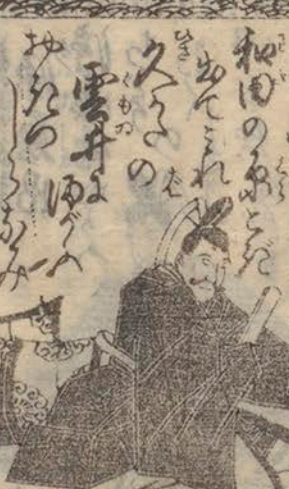 和田の原こぎ
出てみれは
久かたの
雲井に
まがふ
おきつ
しらなみ